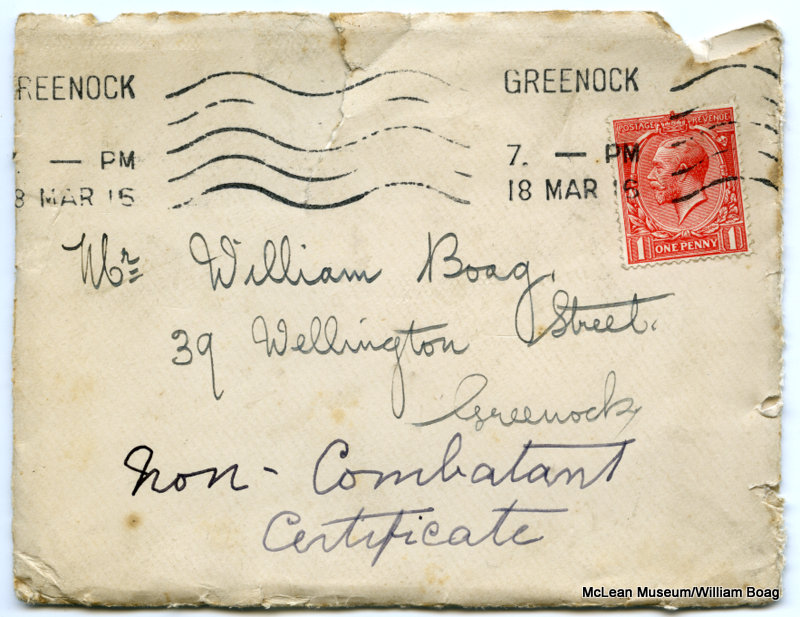 REENOCK
GREENOCK
— PM
7. — PM
8 MAR 16
18 MAR 16
POSTAGE REVENUE
1 ONE PENNY 1
Mr William Boag,
39 Wellington Street.
Greenock,
Non-Combatant
Certificate
McLean Museum/William Boag